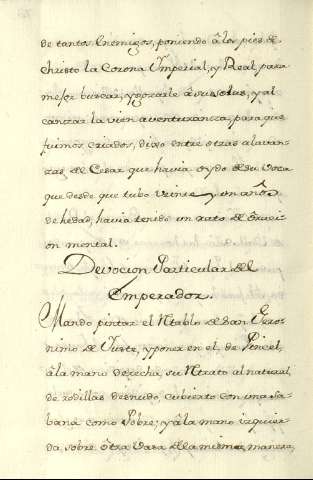 de tantos Enemigos, poniendo â los pies de
Christo la Corona Ymperial, y Real, para
mejor buscar, y gozarle â su solus, y al
canzar la vien aventuranza, para que
fuimos criados, digo entre otras alavan-
zas de Cesar que havia oydo de su voca
que desde que tubo veinte y un años
de hedad, havia tenido un rato de oracion
mental.
Devocion Particular del
Emperador.
Mando pintar el Rtablo de San Gero-
nimo de Yuste, y poner en el de Pincel,
â la mano derecha, su Rtrato al natural,
de rodillas desnudo, cubierto con una sa-
bana como Pobre; y â la mano izquier-
da, sobre ôtra vara de la misma manera,